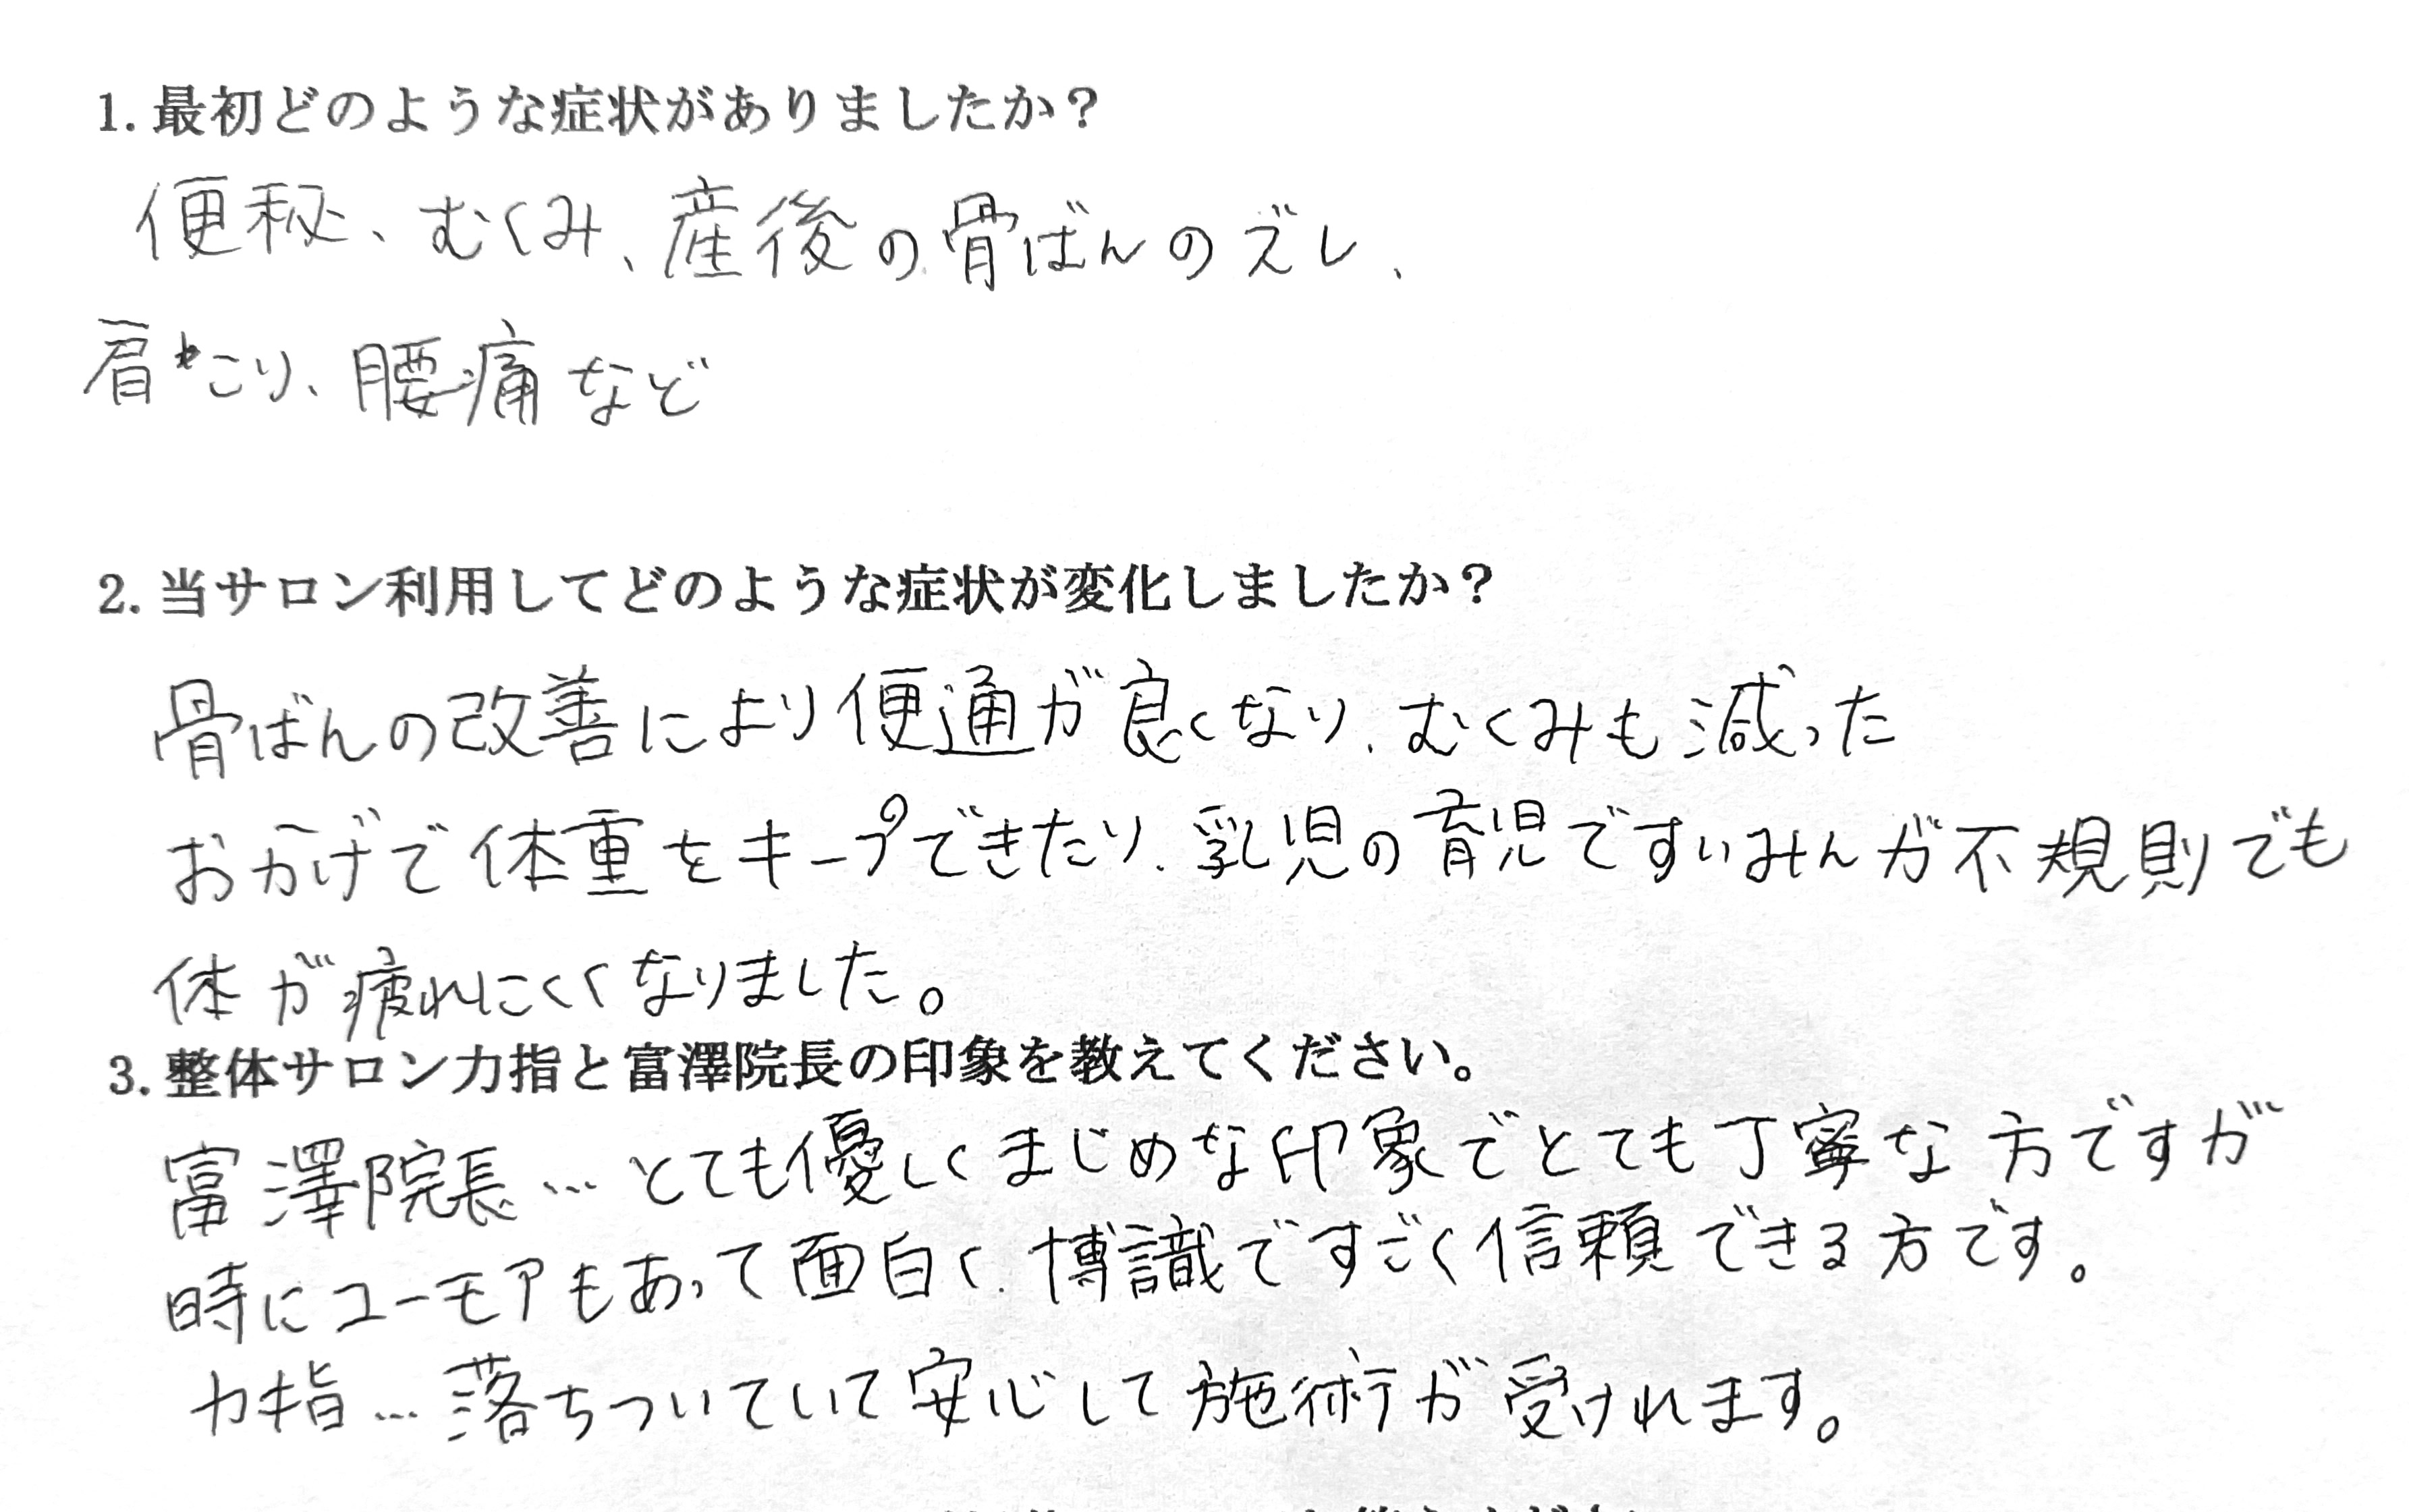 1. 最初どのような症状がありましたか？
便秘、むくみ、産後の骨ばんのズレ、
肩こり、腰痛など
2. 当サロン利用してどのような症状が変化しましたか？
骨ばんの改善により便通が良くなり、むくみも減った
おかげで体重をキープできたり、乳児の育児ですいみんが不規則でも
体が疲れにくくなりました。
3. 整体サロン力指と富澤院長の印象を教えてください。
富澤院長…とても優しくまじめな印象でとても丁寧な方ですが
時にユーモアもあって面白く、博識ですごく信頼できる方です。
力指…落ちついていて安心して施術が受けれます。